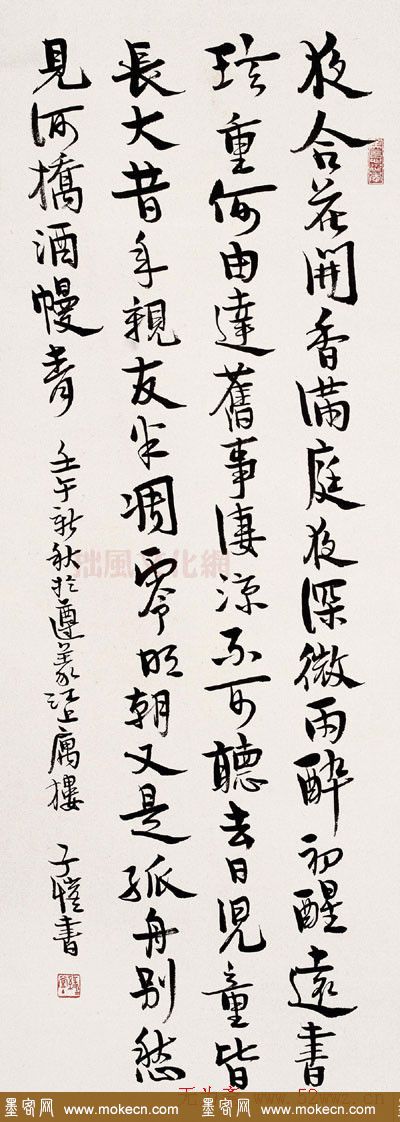 夜合花開香滿庭夜深微雨醉初醒遠書
珍重何由達舊事凄凉不可聽去日兒童皆
長大昔年親友半凋零明朝又是孤舟別愁
見河橋酒幔青
壬午新秋於遵義江上寓樓 子愷書
拙風文化網
www.52wwz.cn
墨客网 www.mokecn.com 墨客网 www.mokecn.com 墨客网 www.mokecn.com